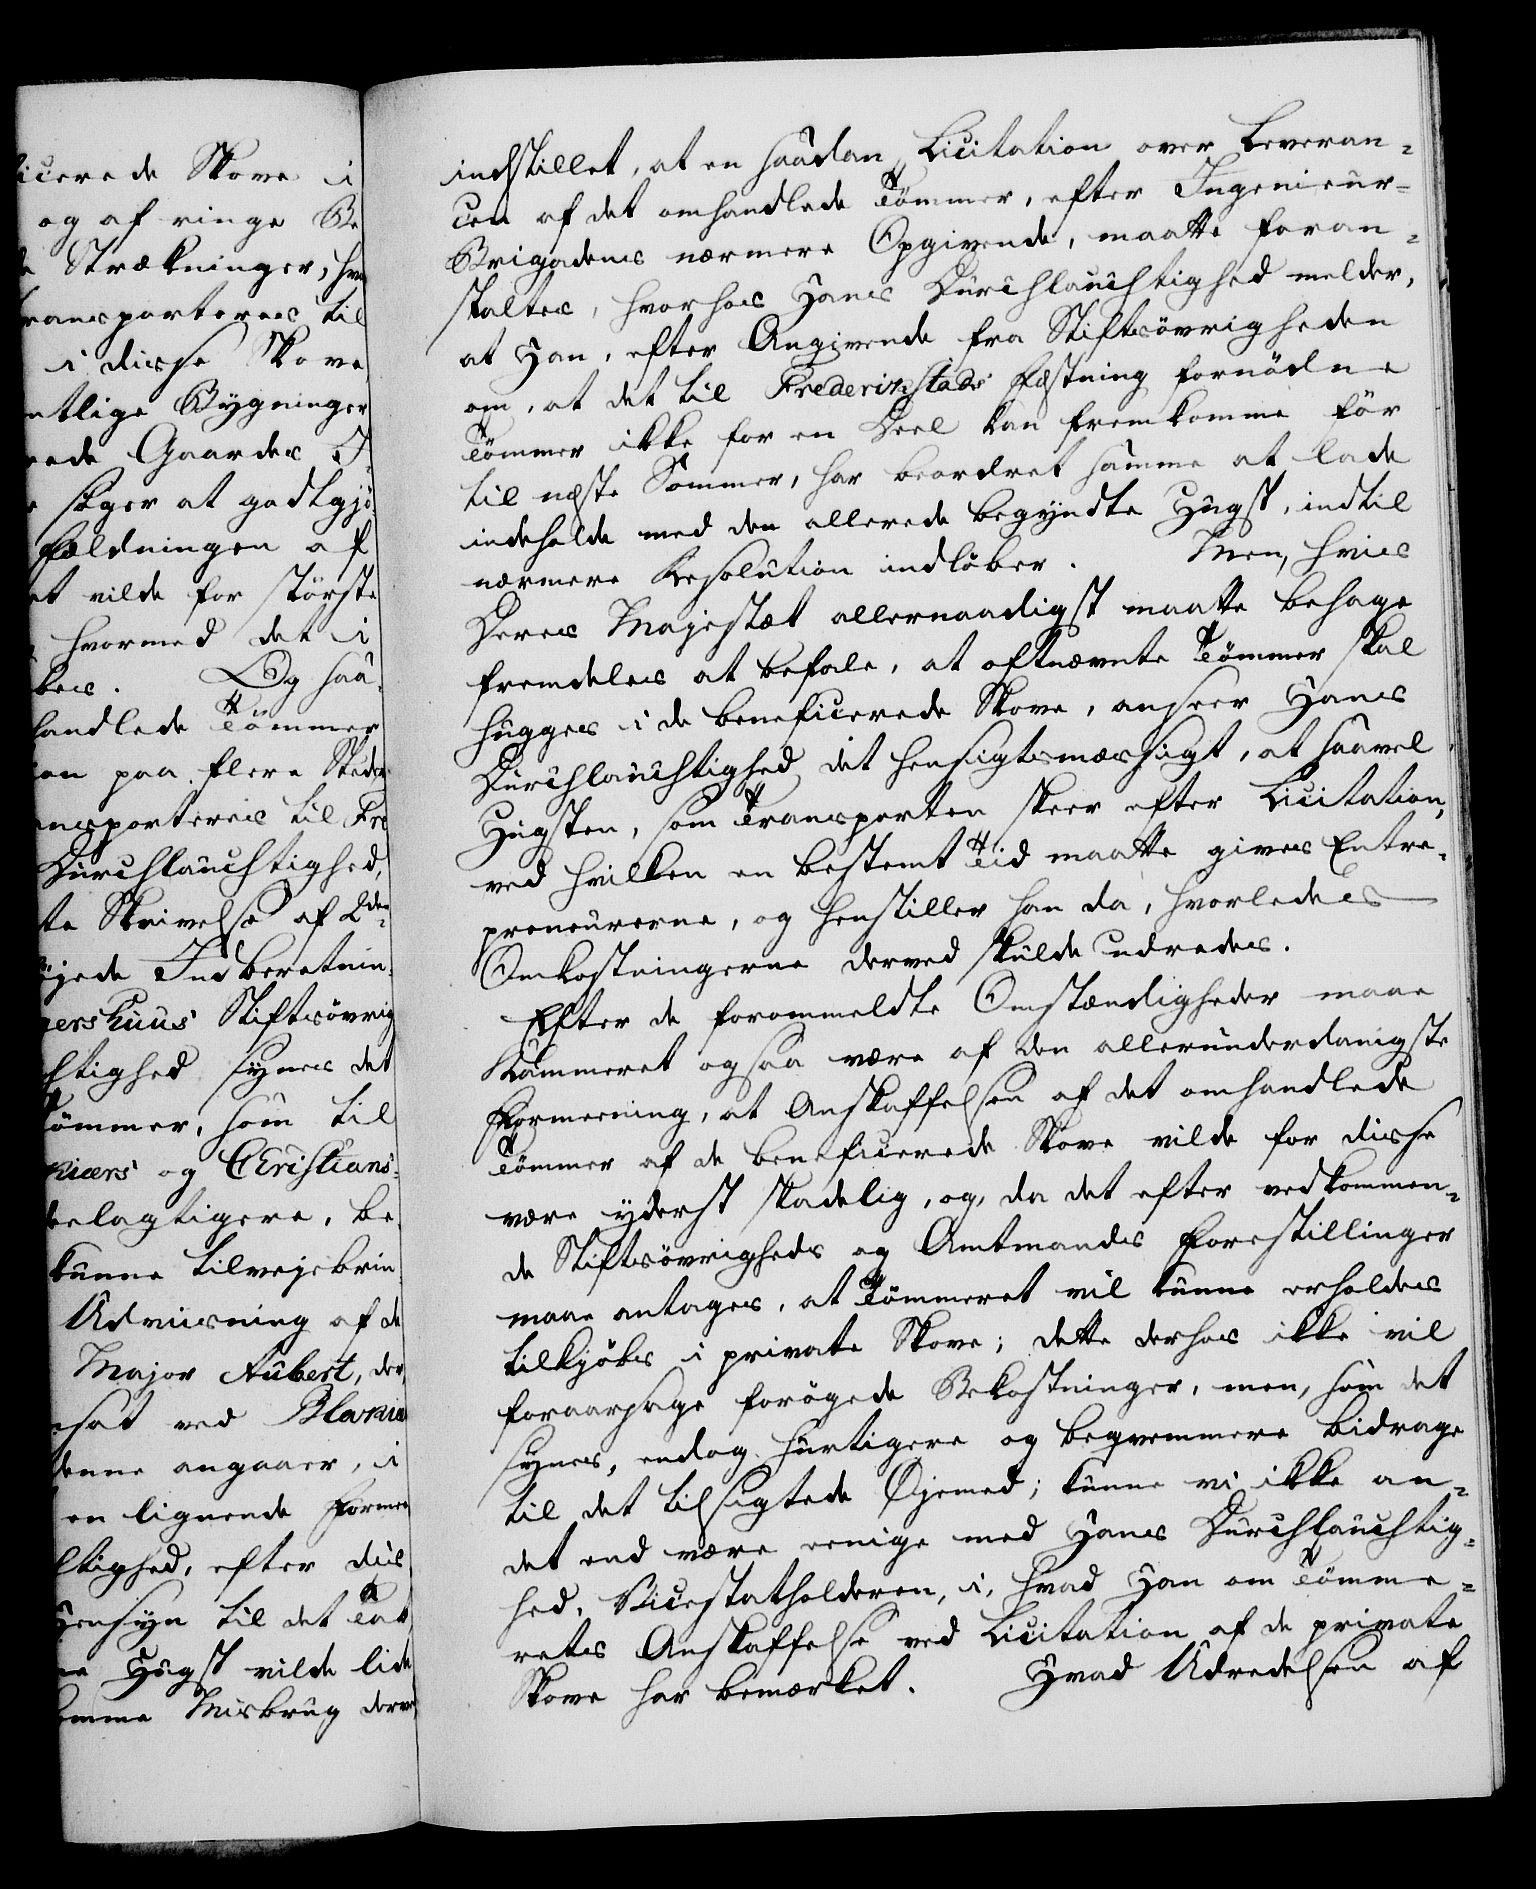 icerede Skove i
og af ringe Be
de Strækninger, hvo
ransporteres til
i disse Skove
ntlige Bygninger
rede Gaardes J
søger at godtgjø
Fældningen af
et vilde for største
hvormed det i
bes. Og saa-
handlede Tömmer
ion paa flere Steder
nsporteres til Fre
Durchlauchtighed,
te Skrivelse af 2den
öjede Indberetnin-
gershuus Stiftsövrig
htighed synes det
Tömmer, som til
kiærs og Christians-
delagtigere, be
kunne tilvejebrin
Udviisning af de
Major Aubert, der
sat ved Blakiæ
denne angaaer, i
en lignende Forme
htighed, efter dis
Hensyn til det Tab
ne Hugst vilde lide
omme Misbrug derve
indstillet, at en saadan Licitation over Leveran-
cen af det omhandlede Tömmer, efter Ingenieur-
Brigadens nærmere Opgivende, maatte foran-
staltes, hvorhos Hans Durchlauchtighed melder,
at Han, efter Angivende fra Stiftsövrigheden
om, at det til Frederikstads Fæstning fornödne
Tömmer ikke for en Deel kan fremkomme för
til næste Sommer, har beordret samme at lade
indeholde med den allerede begyndte Hugst, indtil
nærmere Resolution indlöber. Men, hviis
Deres Majestæt allernaadigst maatte behage
fremdeles at befale, at oftnævnte Tömmer skal
hugges i de beneficerede Skove, anseer Hans
Durchlauchtighed det hensigtsmæssigt, at saavel
Hugsten, som Transporten skeer efter Licitation,
ved hvilken en bestemt Tid maatte gives Entre-
preneurerne, og henstiller han da, hvorledes
Omkostningerne derved skulde udredes.
Efter de forommeldte Omstændigheder maae
Kammeret ogsaa være af den allerunderdanigste
Formeening, at Anskaffelsen af det omhandlede
Tömmer af de beneficerede Skove vilde for disse
være yderst skadelig, og, da det efter vedkommen-
de Stiftsövrigheds og Amtmands Forestillinger
maae antages, at Tömmeret vil kunne erholdes
tilkjöbs i private Skove; dette derhos ikke vil
foraarsage forögede Bekostninger, men, som det
synes, endog hurtigere og beqvemmere bidrage
til det tilsigtede Øjemed; kunne vi ikke an-
det end være eenige med Hans Durchlauchtig-
hed, Vicestatholderen, i, hvad Han om Tömme-
rets Anskaffelse ved Licitation af de private
Skove har bemærket. Hvad Udredelsen af